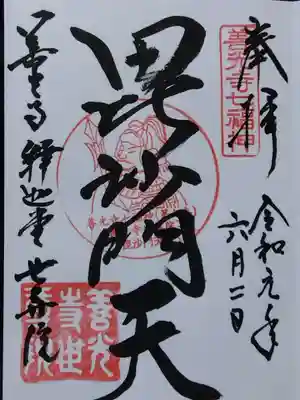 奉拝
善光寺七福神
令和元年
六月二日
毘沙門天
善光寺 釈迦堂 世尊院
善光
寺世
尊院